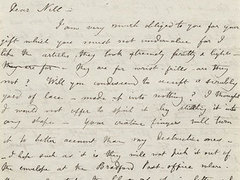 Dear Nell –
I am very much obliged to you for your
gift which you must not undervalue for I
like the articles, they look extremely pretty & light
they are for wrist frills, are they
not? Will you condescend to accept a
yard of lace – made up into nothing? I thought
I would not offer to spoil it by it into
any shape – Your creative fingers will turn
it to better account than my destructive ones –
I hope such as it is they will not pick it out of
the envelope at the Bradford Post-office where